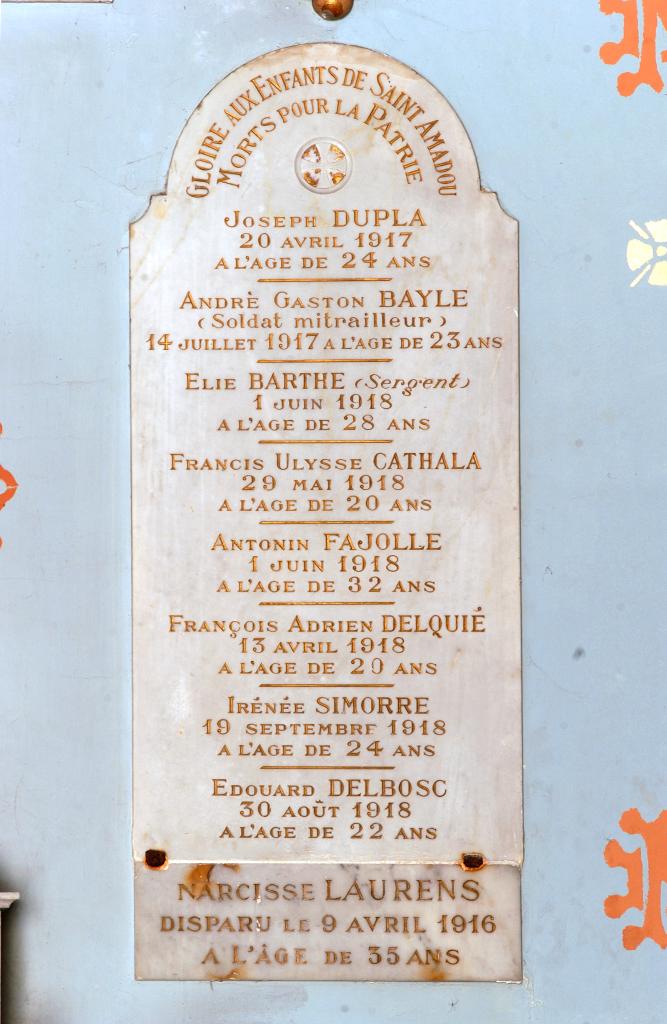 GLOIRE AUX ENFANTS DE SAINT AMADOU
MORTS POUR LA PATRIE
JOSEPH DUPLA
20 AVRIL 1917
A L'AGE DE 24 ANS
ANDRÈ GASTON BAYLE
(Soldat mitrailleur)
14 JUILLET 1917 A L'AGE DE 23 ANS
ELIE BARTHE (Sergent)
1 JUIN 1918
A L'AGE DE 28 ANS
FRANCIS ULYSSE CATHALA
29 MAI 1918
A L'AGE DE 20 ANS
ANTONIN FAJOLLE
1 JUIN 1918
A L'AGE DE 32 ANS
FRANÇOIS ADRIEN DELQUIÉ
13 AVRIL 1918
A L'AGE DE 20 ANS
IRÉNÉE SIMORRE
19 SEPTEMBRE 1918
A L'AGE DE 24 ANS
EDOUARD DELBOSC
30 AOÛT 1918
A L'AGE DE 22 ANS
NARCISSE LAURENS
DISPARU LE 9 AVRIL 1916
A L'ÂGE DE 35 ANS